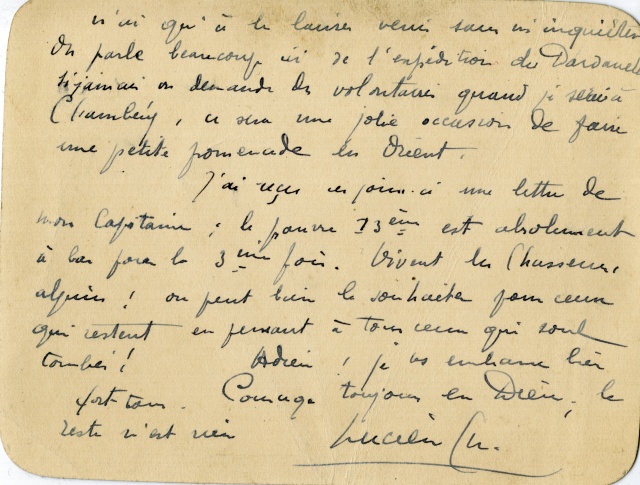 n'ai qu'à le laisser venir sans m'inquiéter
On parle beaucoup ici de l'expédition des Dardanelles
Si jamais on demande des volontaires quand je serai à
Chambéry, ce sera une jolie occasion de faire
une petite promenade en Orient.
J'ai reçu ces jours-ci une lettre de
mon Capitaine ; le pauvre 13ème est absolument
à bas pour la 3ème fois. Vivent les Chasseurs
alpins ! on peut bien le souhaiter pour ceux
qui restent en pensant à tous ceux qui sont
tombés ! Adieu ! je vs embrasse bien
fort tous. Courage toujours en Dieu, le
reste n'est rien
Lucien Ch.